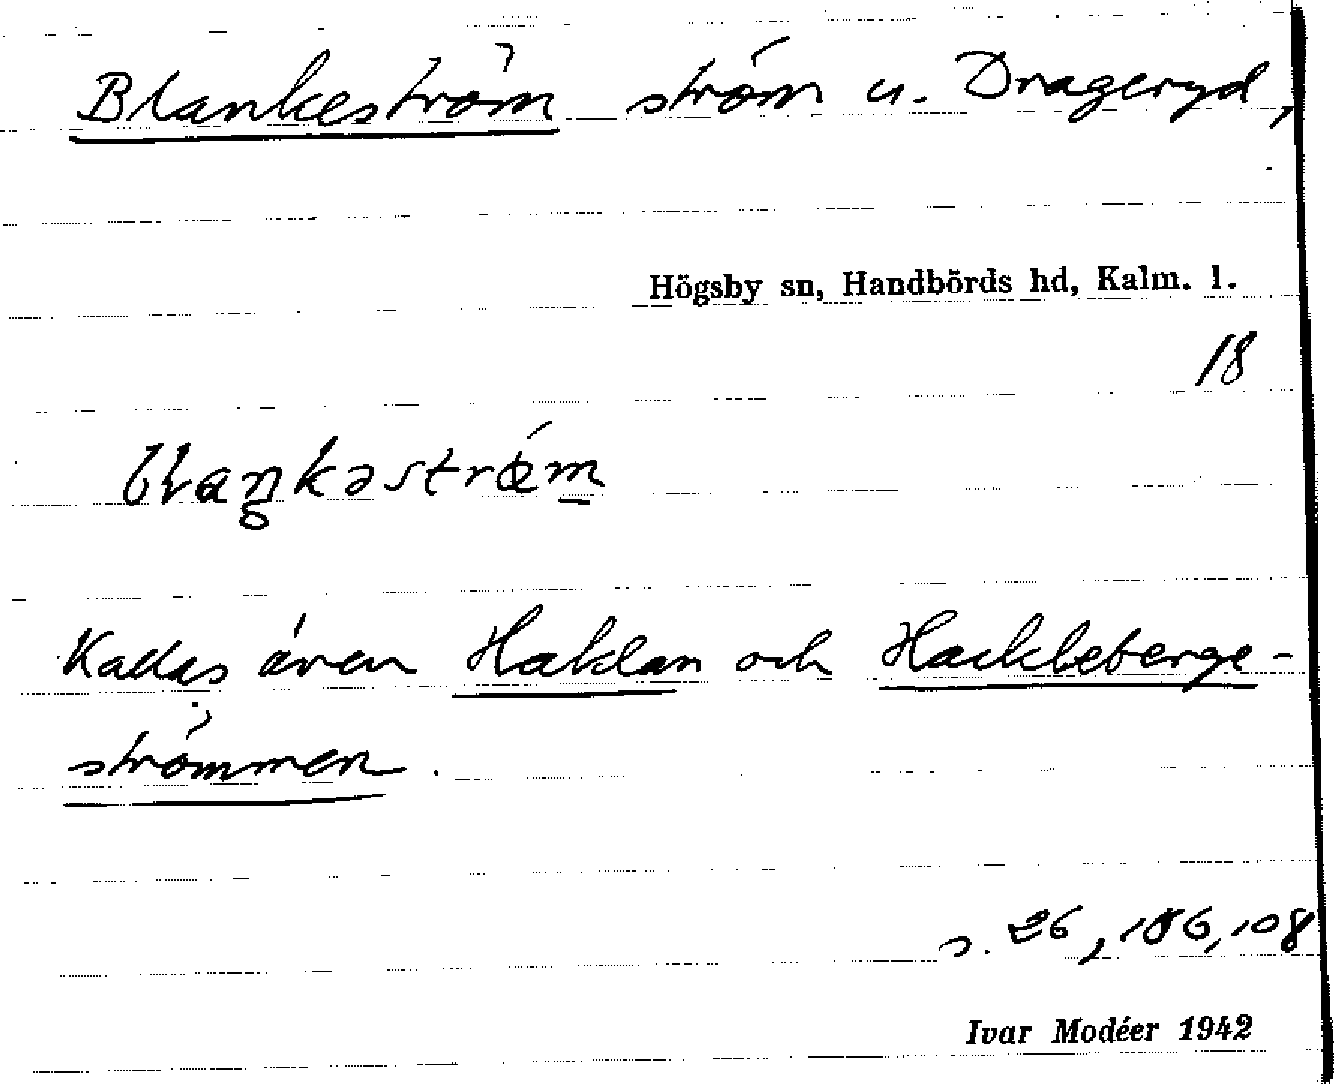 Blankeström ström u. Drageryd,
Högsby sn, Handbörds hd, Kalm. l.
18
blaŋkəstrœ́m
Kallas även Haklan och Hackleberge-
strömmen.
s. 26, 106, 108
Ivar Modéer 1942